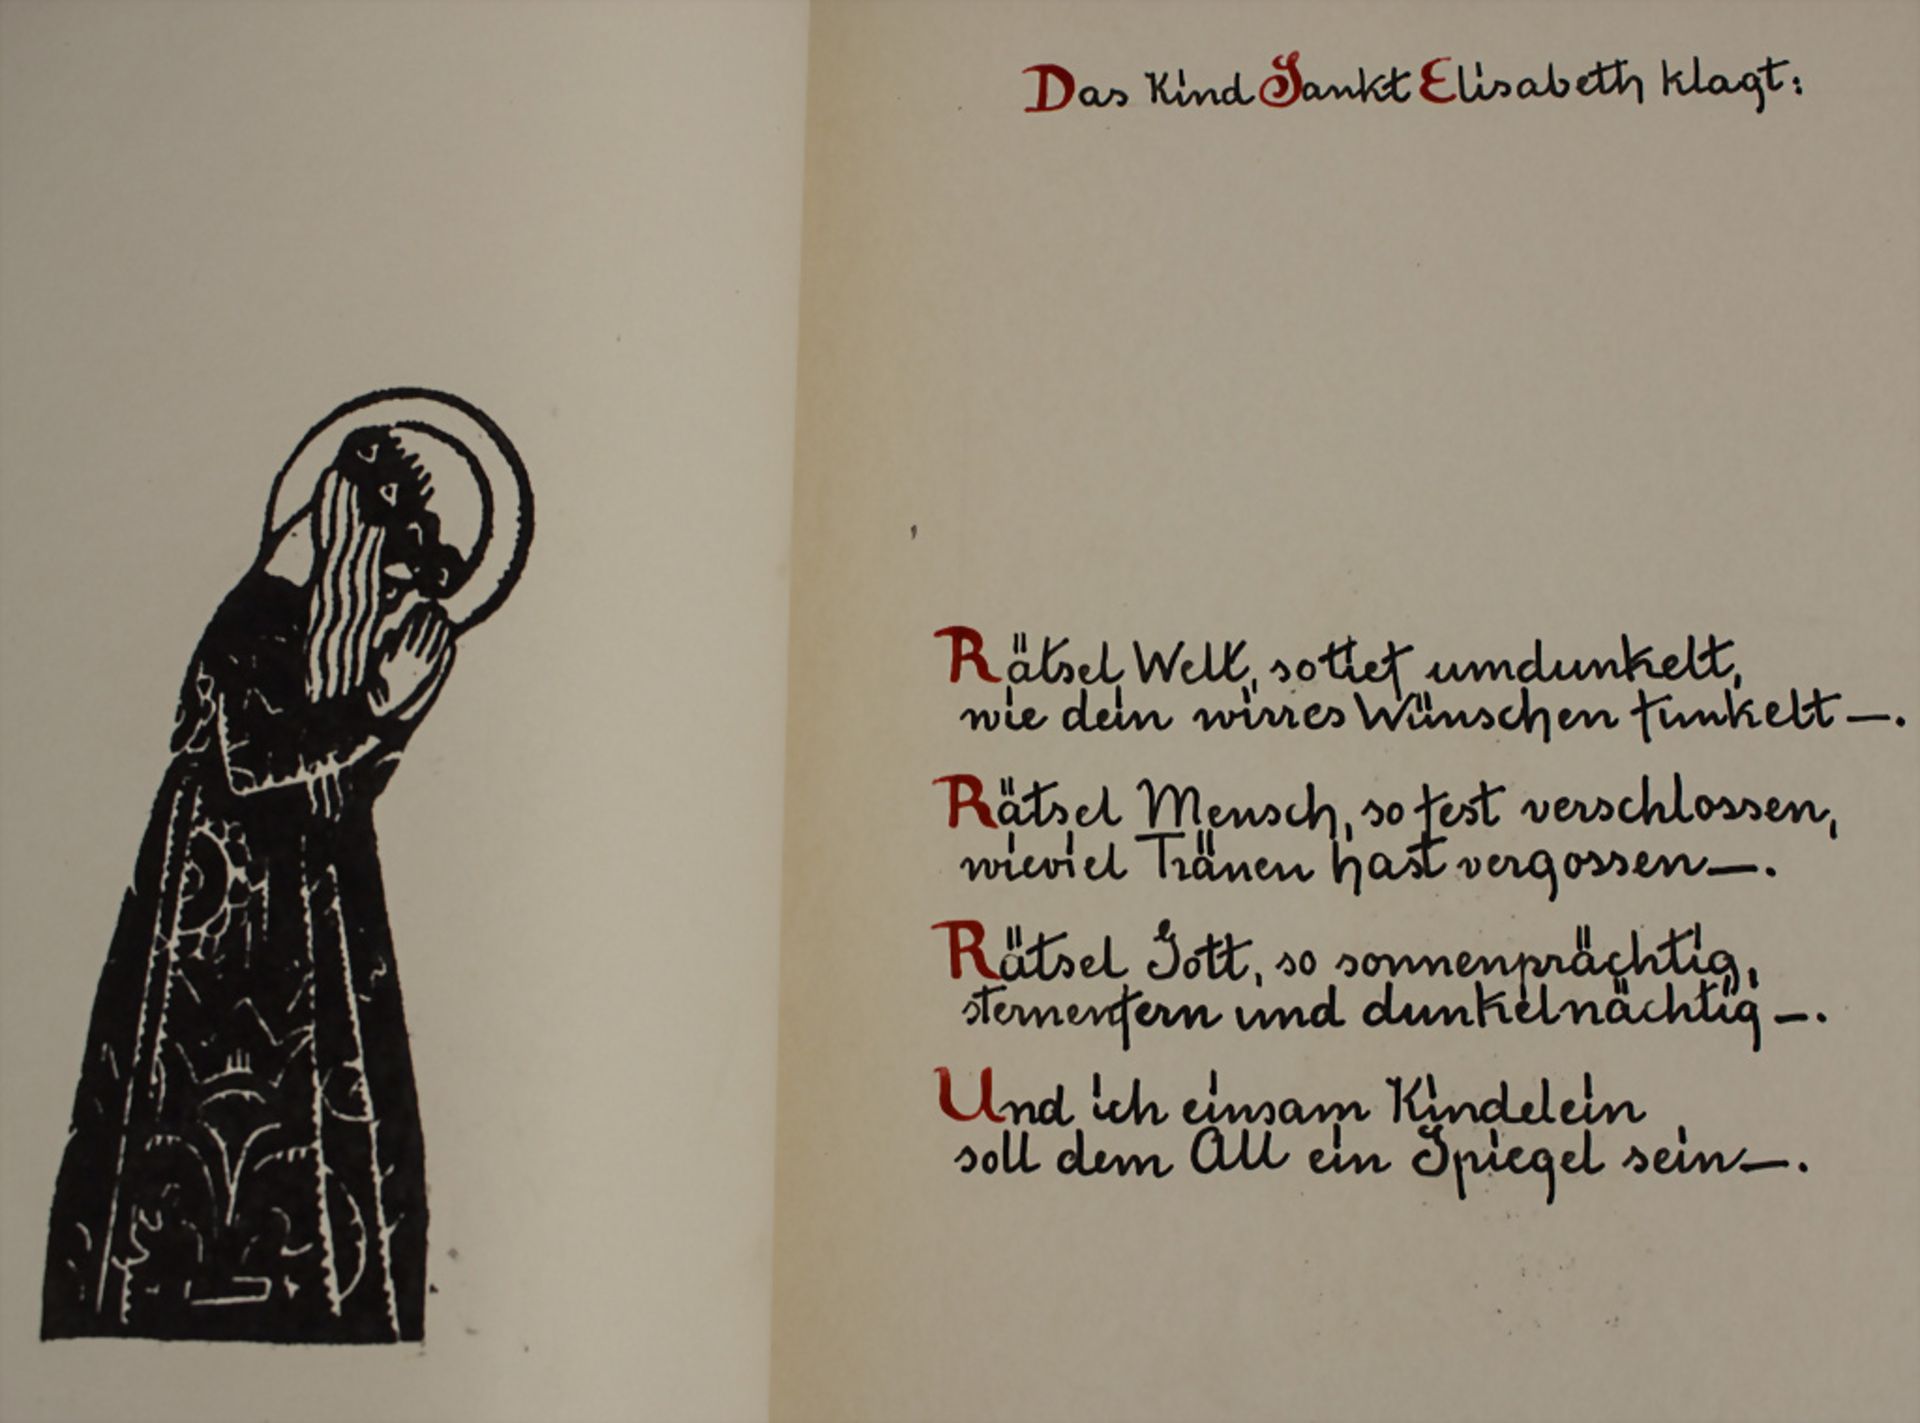 Das Kind Sankt Elisabeth klagt:
Rätsel Welt, so tief umdunkelt,
wie dein wirres Wünschen funkelt—.
Rätsel Mensch, so fest verschlossen,
wieviel Tränen hast vergossen—.
Rätsel Gott, so sonnenprächtig,
sternenfern und dunkelnächtig—.
Und ich einsam Kindelein
soll dem All ein Spiegel sein—.